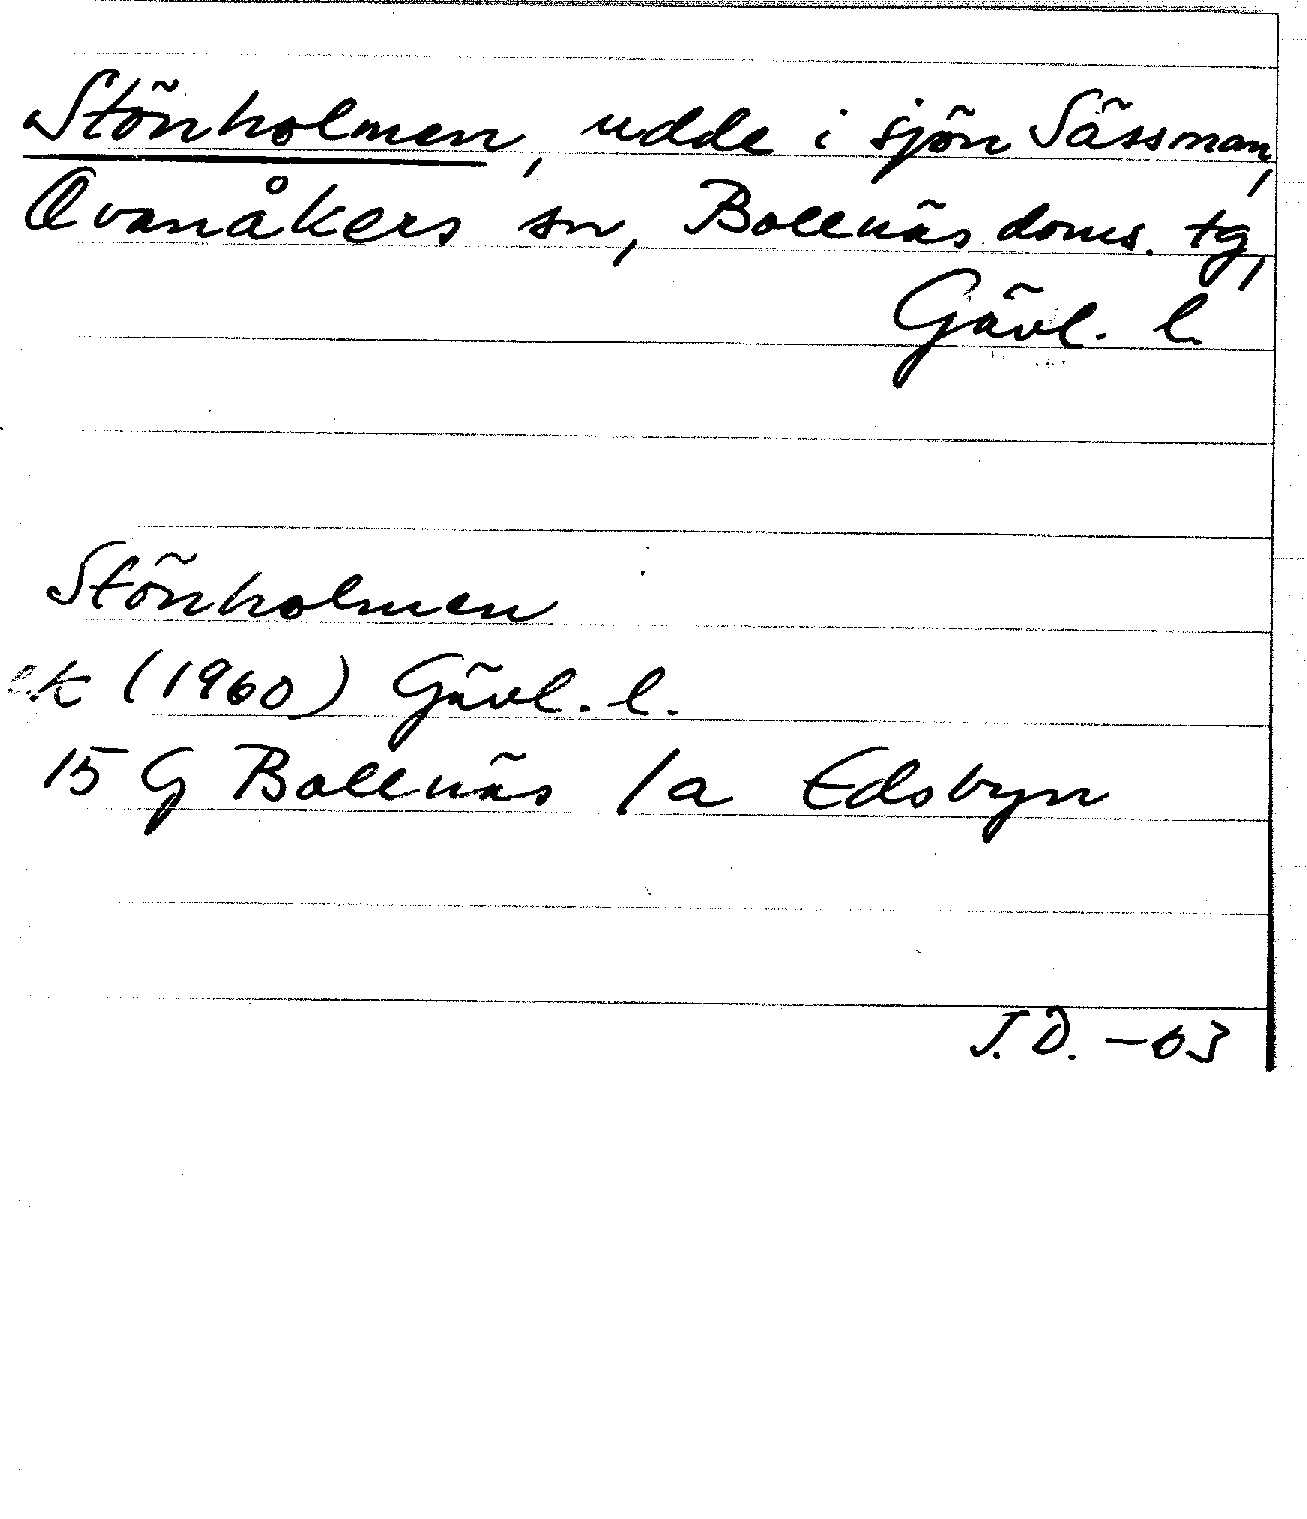 Stönholmen, udde i sjön Sässman,
Ovanåkers sn, Bollnäs doms. tg,
Gävl. l.
Stönholmen
ek (1960) Gävl. l.
15 G Bollnäs /a Edsbyn
J.D. -63